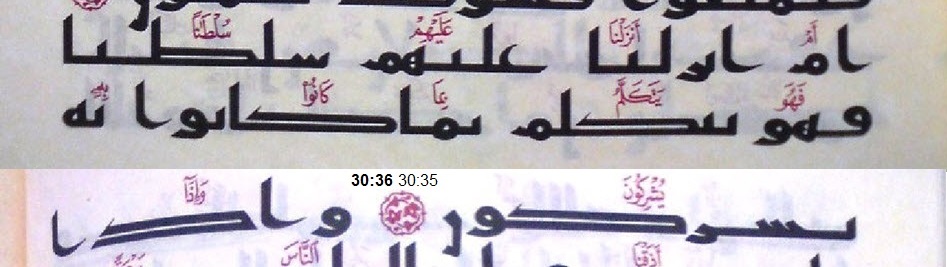 أَمْ أَنزَلْنَا عَلَيْهِمْ سُلْطَانًا
ام انزلنا عليهم سلطنا
فَهُوَ يَتَكَلَّمُ بِمَا كَانُوا بِهِ
فهو يتكلم بما كانوا به
30:36 30:35
يُشْرِكُونَ وَإِذَا
يشركون واذا
أَذَقْنَا النَّاسَ